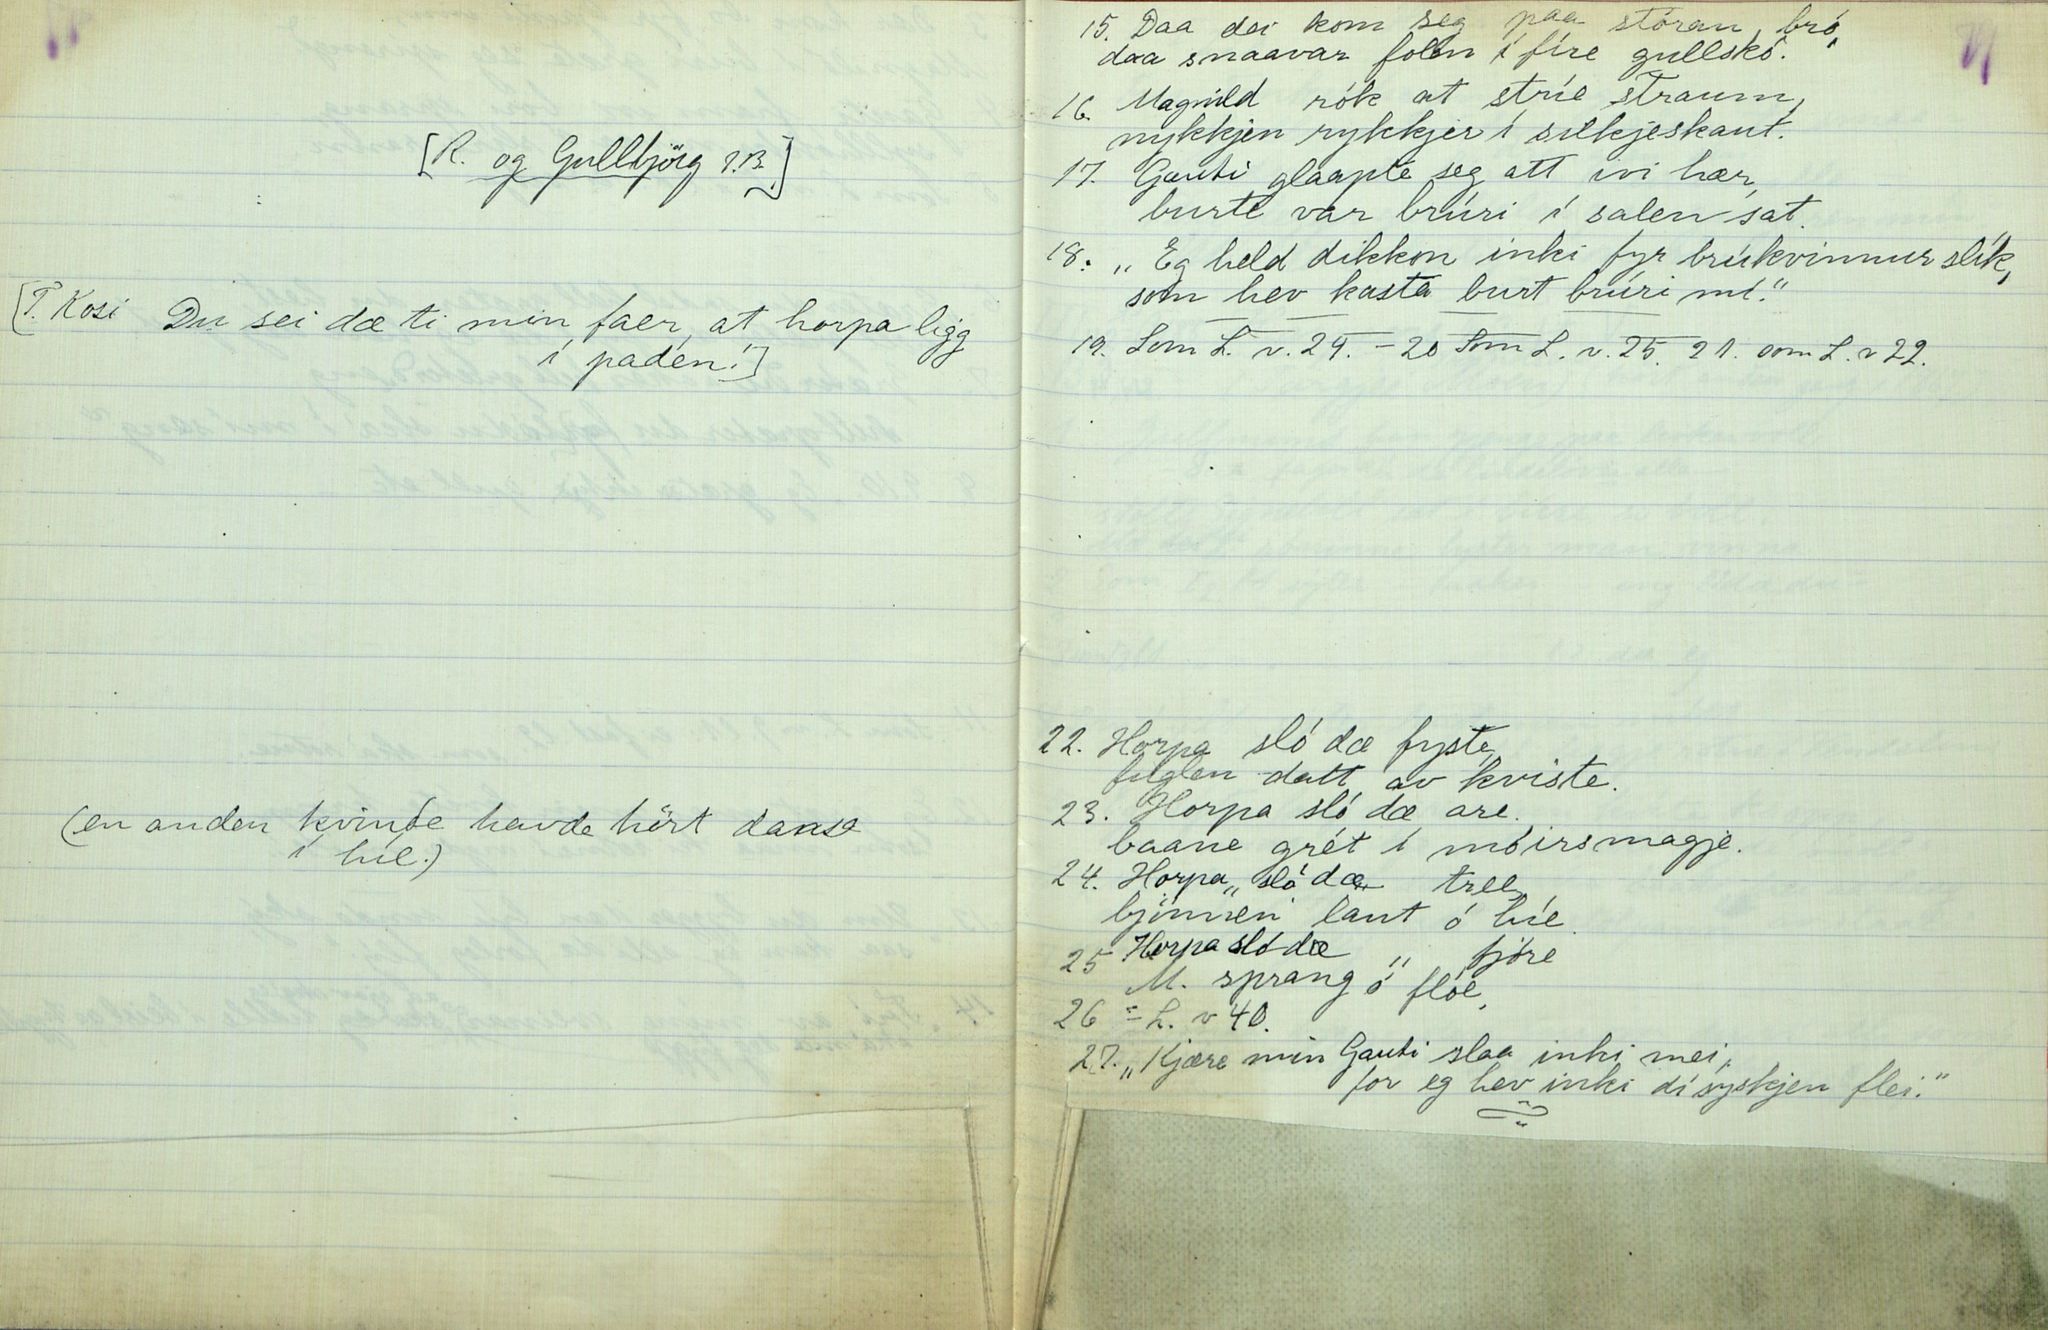 [R. og Gullbjörg J.B.]
[T. Kosi Du sei dæ ti min faer, at horpa ligg
í paden!]
(en anden kvinde havde hört danse
í híe.)
15. Daa dei kom seg paa stóran bró,
daa snaavar folen í fíre gullskó.
16. Magníld rók at stríe straum,
nykkjen rykkjer í silkjeskaut.
17. Gauti glaapte seg att ivi hær,
burte var brúri í salen sat.
18. „Eg held dikkon inki fyr brúkvinnur slík,
som hev kasta burt brúri mí."
19. Som L. v. 24. – 20 Som L. v. 25. 21. som L. v 22.
22. Horpa sló dæ fyste,
fuglen datt av kviste.
23. Horpa sló dæ are.
baane grét í móirsmagje.
24. Horpa „ sló dæ „ tree,
bjinnen laut ó híe.
25 Horpa sló dæ „ fjóre
M. sprang ó flóe,
26 = L. v 40.
27. „Kjære min Gauti slaa inki mei,
for eg hev inki dí syskjen flei."